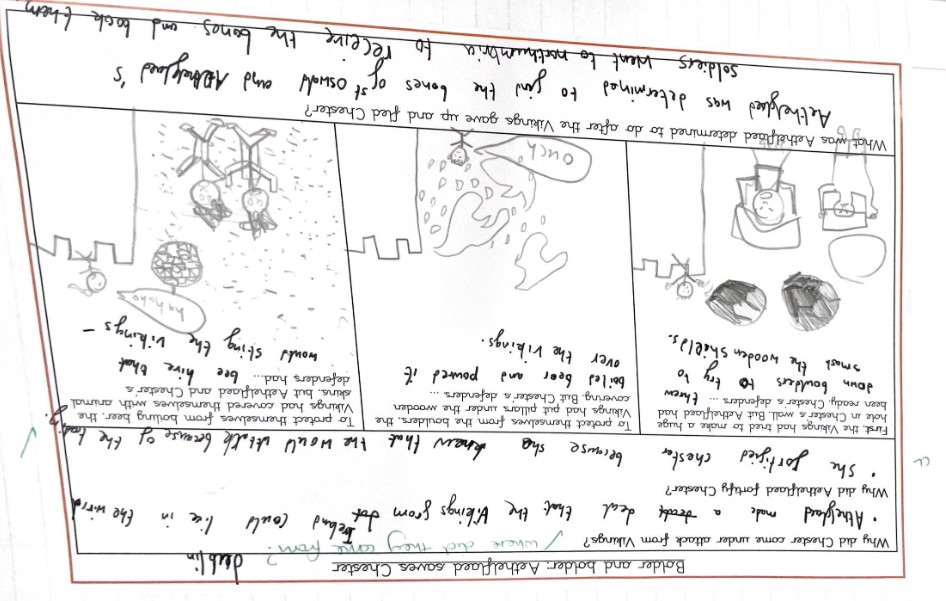 Bolder and bolder: Aethelflaed saves Chester
dublin
Why did Chester come under attack from Vikings? / where did they come from?
• Athelflaed made a deal that the Vikings from Ireland could live in the wirral
Why did Aethelflaed fortify Chester?
• She fortified chester because she knew that the would attack because of the
First, the Vikings had tried to make a huge
hole in Chester's wall. But Aethelflaed had
been ready. Chester's defenders ... threw
down boulders to try to
smash the wooden shields.
To protect themselves from the boulders, the
Vikings had put pillars under the wooden
covering. But Chester's defenders ...
boiled beer and poured it
over the Vikings.
ouch
To protect themselves from boiling beer, the
Vikings had covered themselves with animal
skins, but Aethelflaed and Chester's
defenders had... bee hive that
would sting the vikings -
hahaha
What was Aethelflaed determined to do after the Vikings gave up and fled Chester?
Aethelflaed was determined to find the bones of st Oswald and Aethelflaed's
soldiers went to northumbria to receive the bones and took them